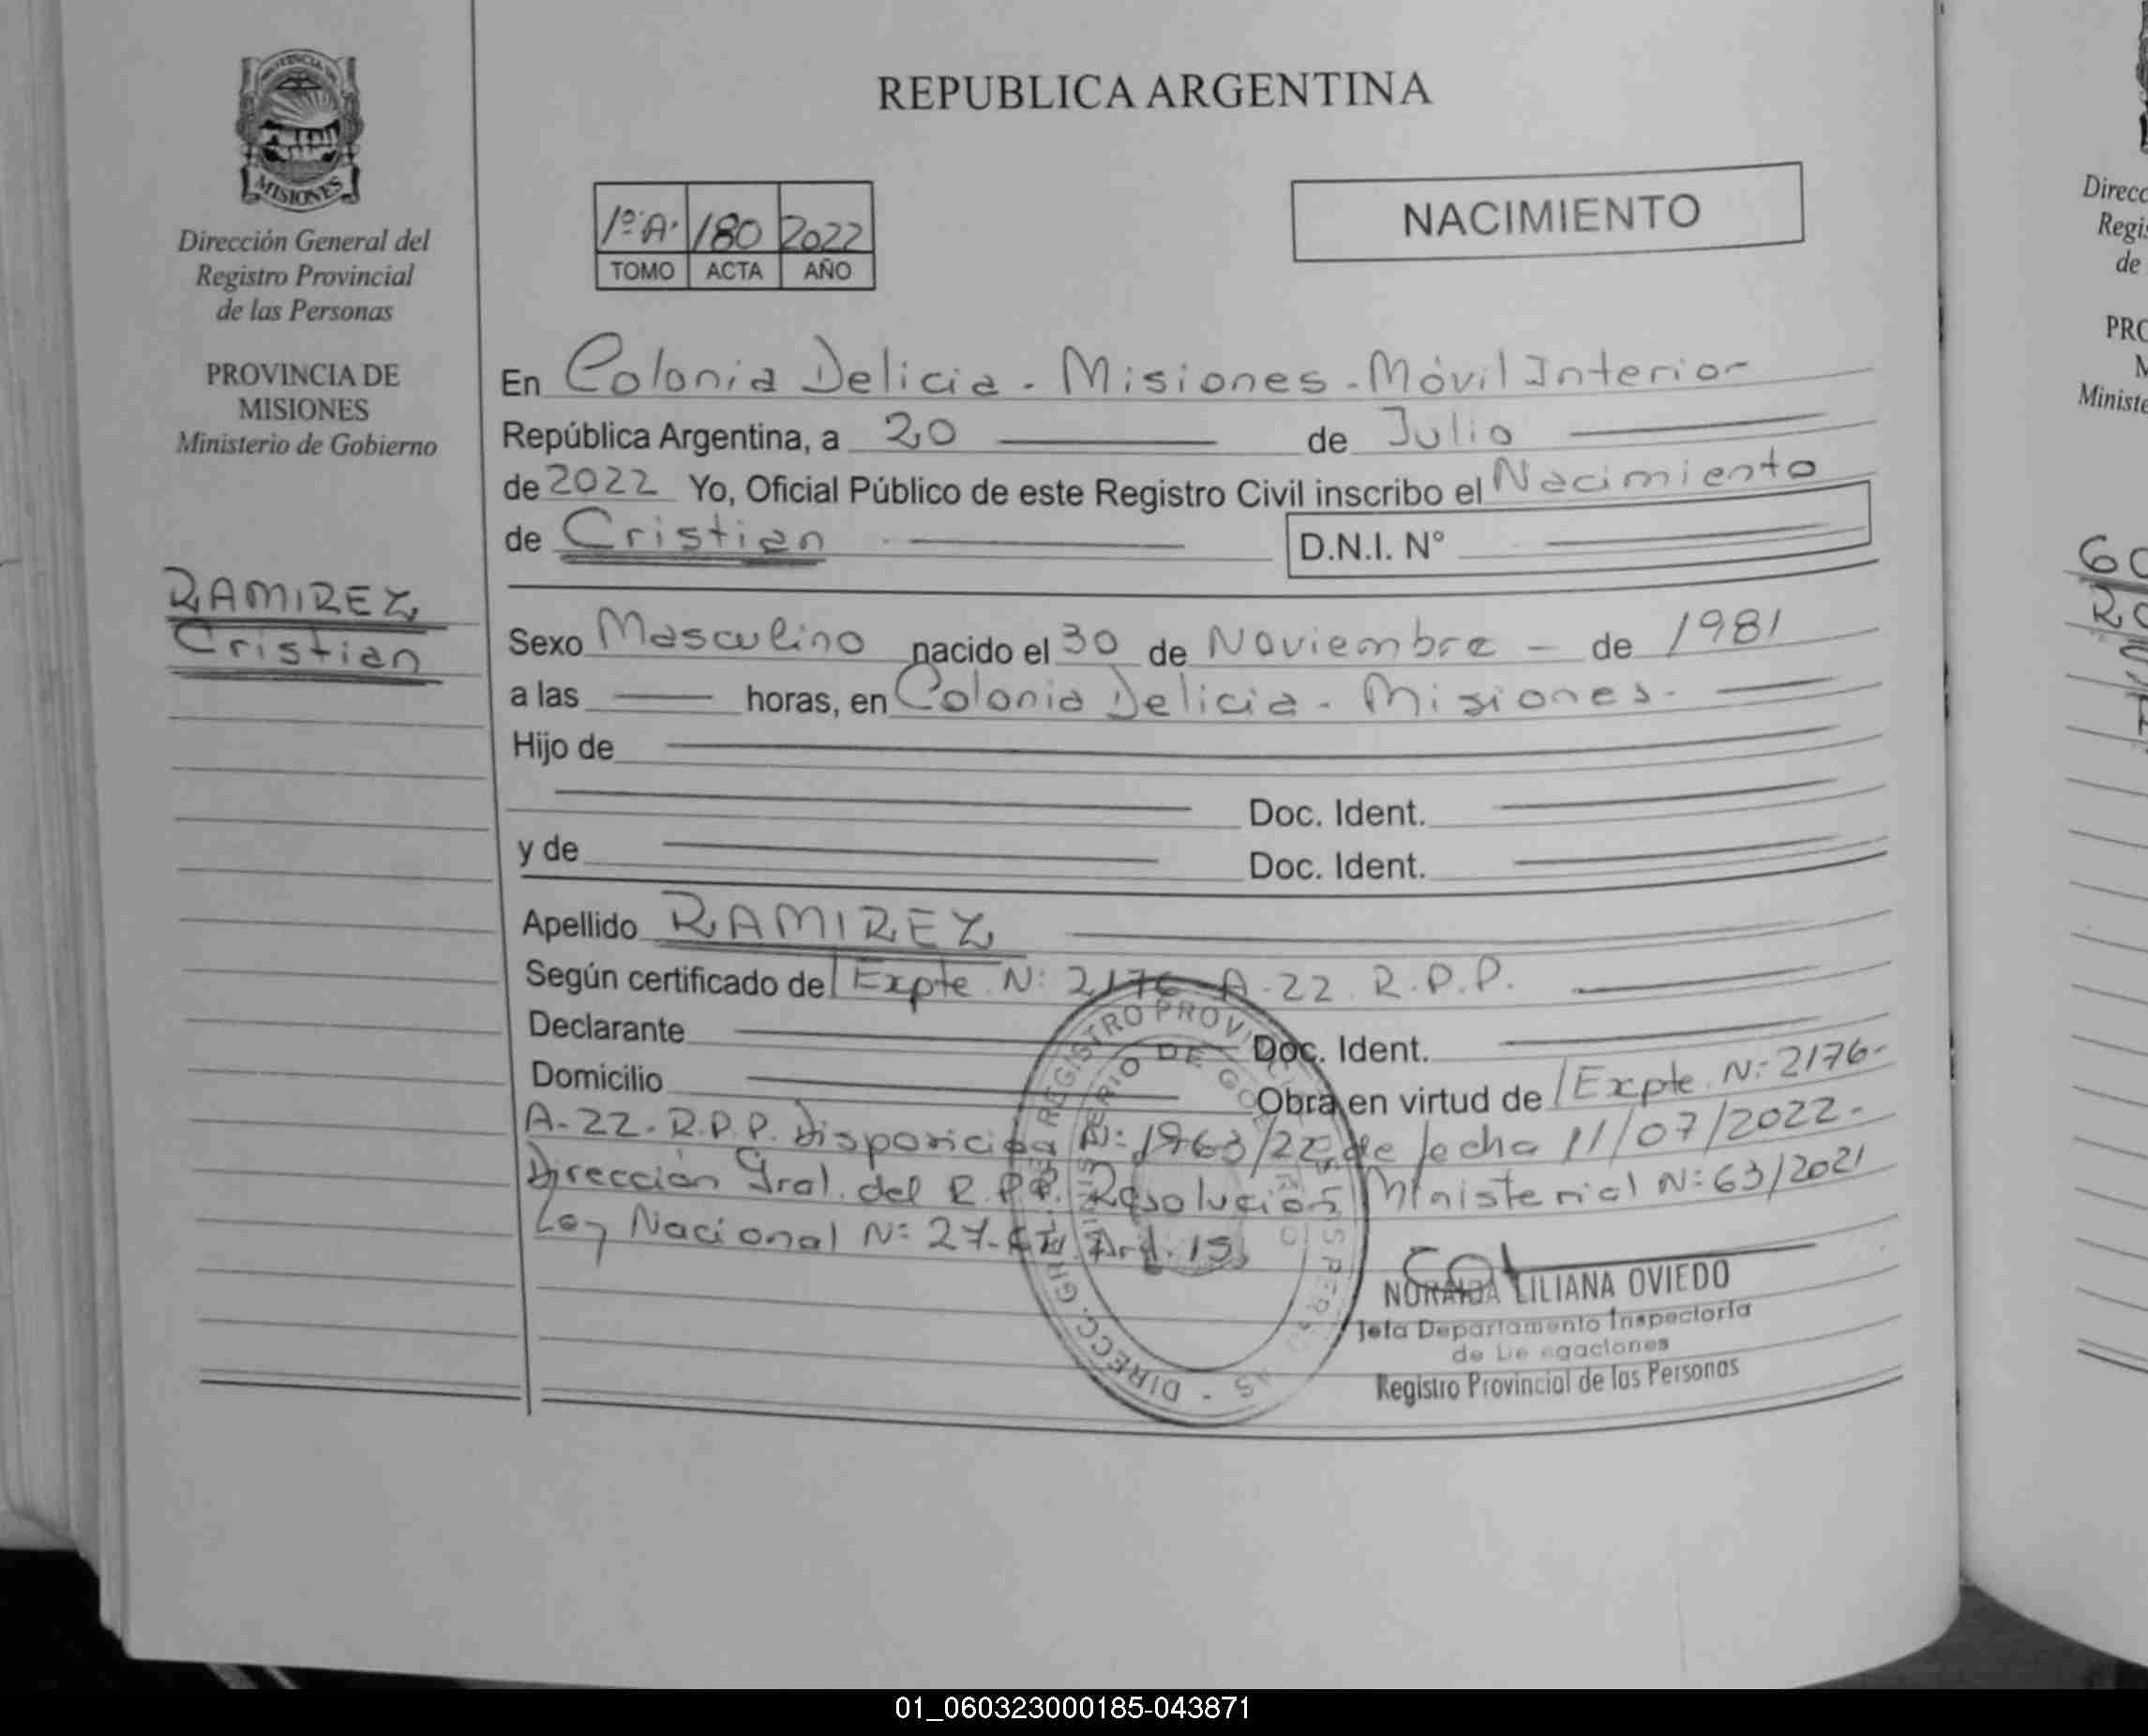 REPUBLICA ARGENTINA
PROVINCIA DE
MISIONES
Dirección General del
Registro Provincial
de las Personas
PROVINCIA DE
MISIONES
Ministerio de Gobierno
RAMIREZ
Cristian
1º A. 180 2022
TOMO ACTA AÑO
NACIMIENTO
En Colonia Delicia - Misiones - Móvil Interior
República Argentina, a 20 de Julio
de 2022 Yo, Oficial Público de este Registro Civil inscribo el Nacimiento
de Cristian D.N.I. N°
Sexo Masculino nacido el 30 de Noviembre - de 1981
a las horas, en Colonia Delicia - Misiones -
Hijo de
Doc. Ident.
y de Doc. Ident.
Apellido RAMIREZ
Según certificado de Expte N: 2176-A-22 R.P.P.
Declarante Doc. Ident.
Domicilio Obra en virtud de Expte. N: 2176-
A-22-R.P.P. Disposición N: /22 de fecha 11/07/2022-
Dirección Gral. del R.P.P. Resolución Ministerial N: 63/2021
Ley Nacional N: Art. 15
DIRECC. GRAL. REGISTRO PROVINCIAL
MINISTERIO DE
LILIANA OVIEDO
Jefa Departamento Inspectoría
de Delegaciones
Registro Provincial de las Personas
Direcc
Regis
de
PRO
M
Ministe
GO
01_060323000185-043871